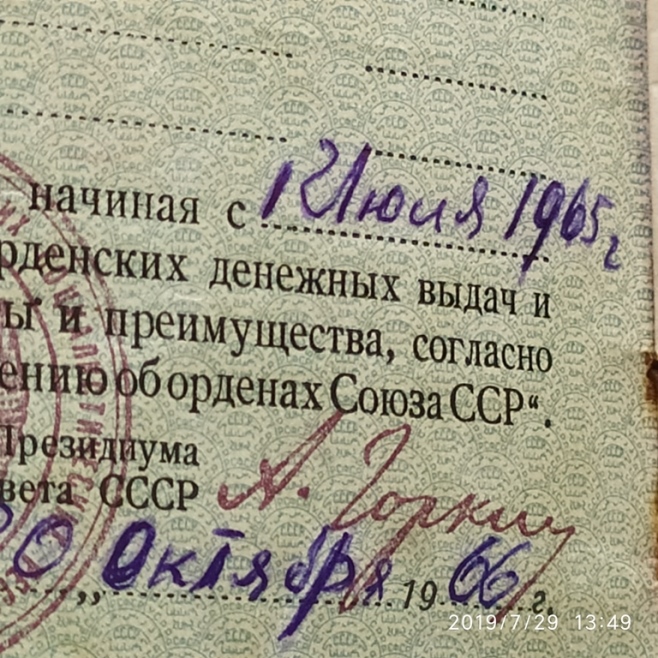 начиная с 12 Июля 1965 г
рденских денежных выдач и
ы и преимущества, согласно
ению об орденах Союза ССР“.
Президиума
вета СССР А. Горкин
20 „ Октября 1966 г.
2019/7/29 13:49